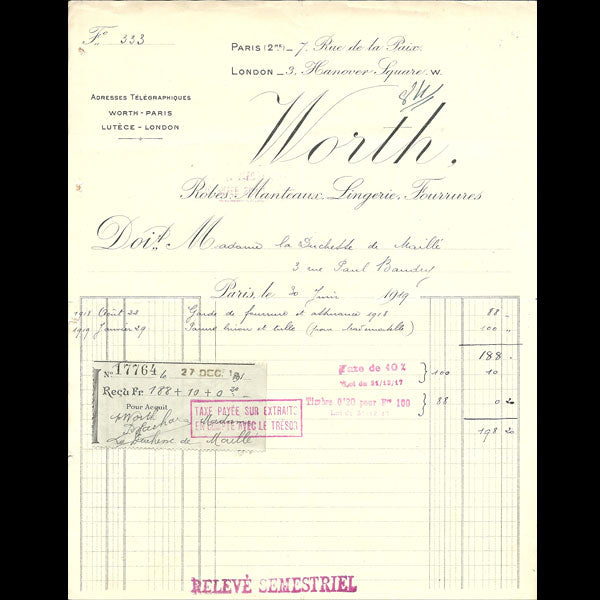 Fo 333
PARIS (2me) _ 7, Rue de la Paix.
LONDON _ 3, Hanover Square, W.
ADRESSES TÉLÉGRAPHIQUES
WORTH - PARIS
LUTÈCE - LONDON
Worth.
Robes, Manteaux, Lingerie, Fourrures
Doit Madame la Duchesse de Maillé
3 rue Paul Baudry
Paris, le 20 Juin 1919
1918 Août 22 Garde de fourrure et assurance 1918 88 "
1919 Janvier 29 et tulle (pour Mademoiselle) 100 "
188 "
Taxe de 10% } 100 10
Loi du 31/12/17
Timbre 0'20 pour Frs 100 } 88 0 20
198 20
No 17764 le 27 DEC. 19
Reçu Fr. 188 + 10 + 0 20
Pour Acquit
Worth
Madame
La Duchesse de Maillé
TAXE PAYÉE SUR EXTRAITS
EN COMPTE AVEC LE TRÉSOR
RELEVÉ SEMESTRIEL